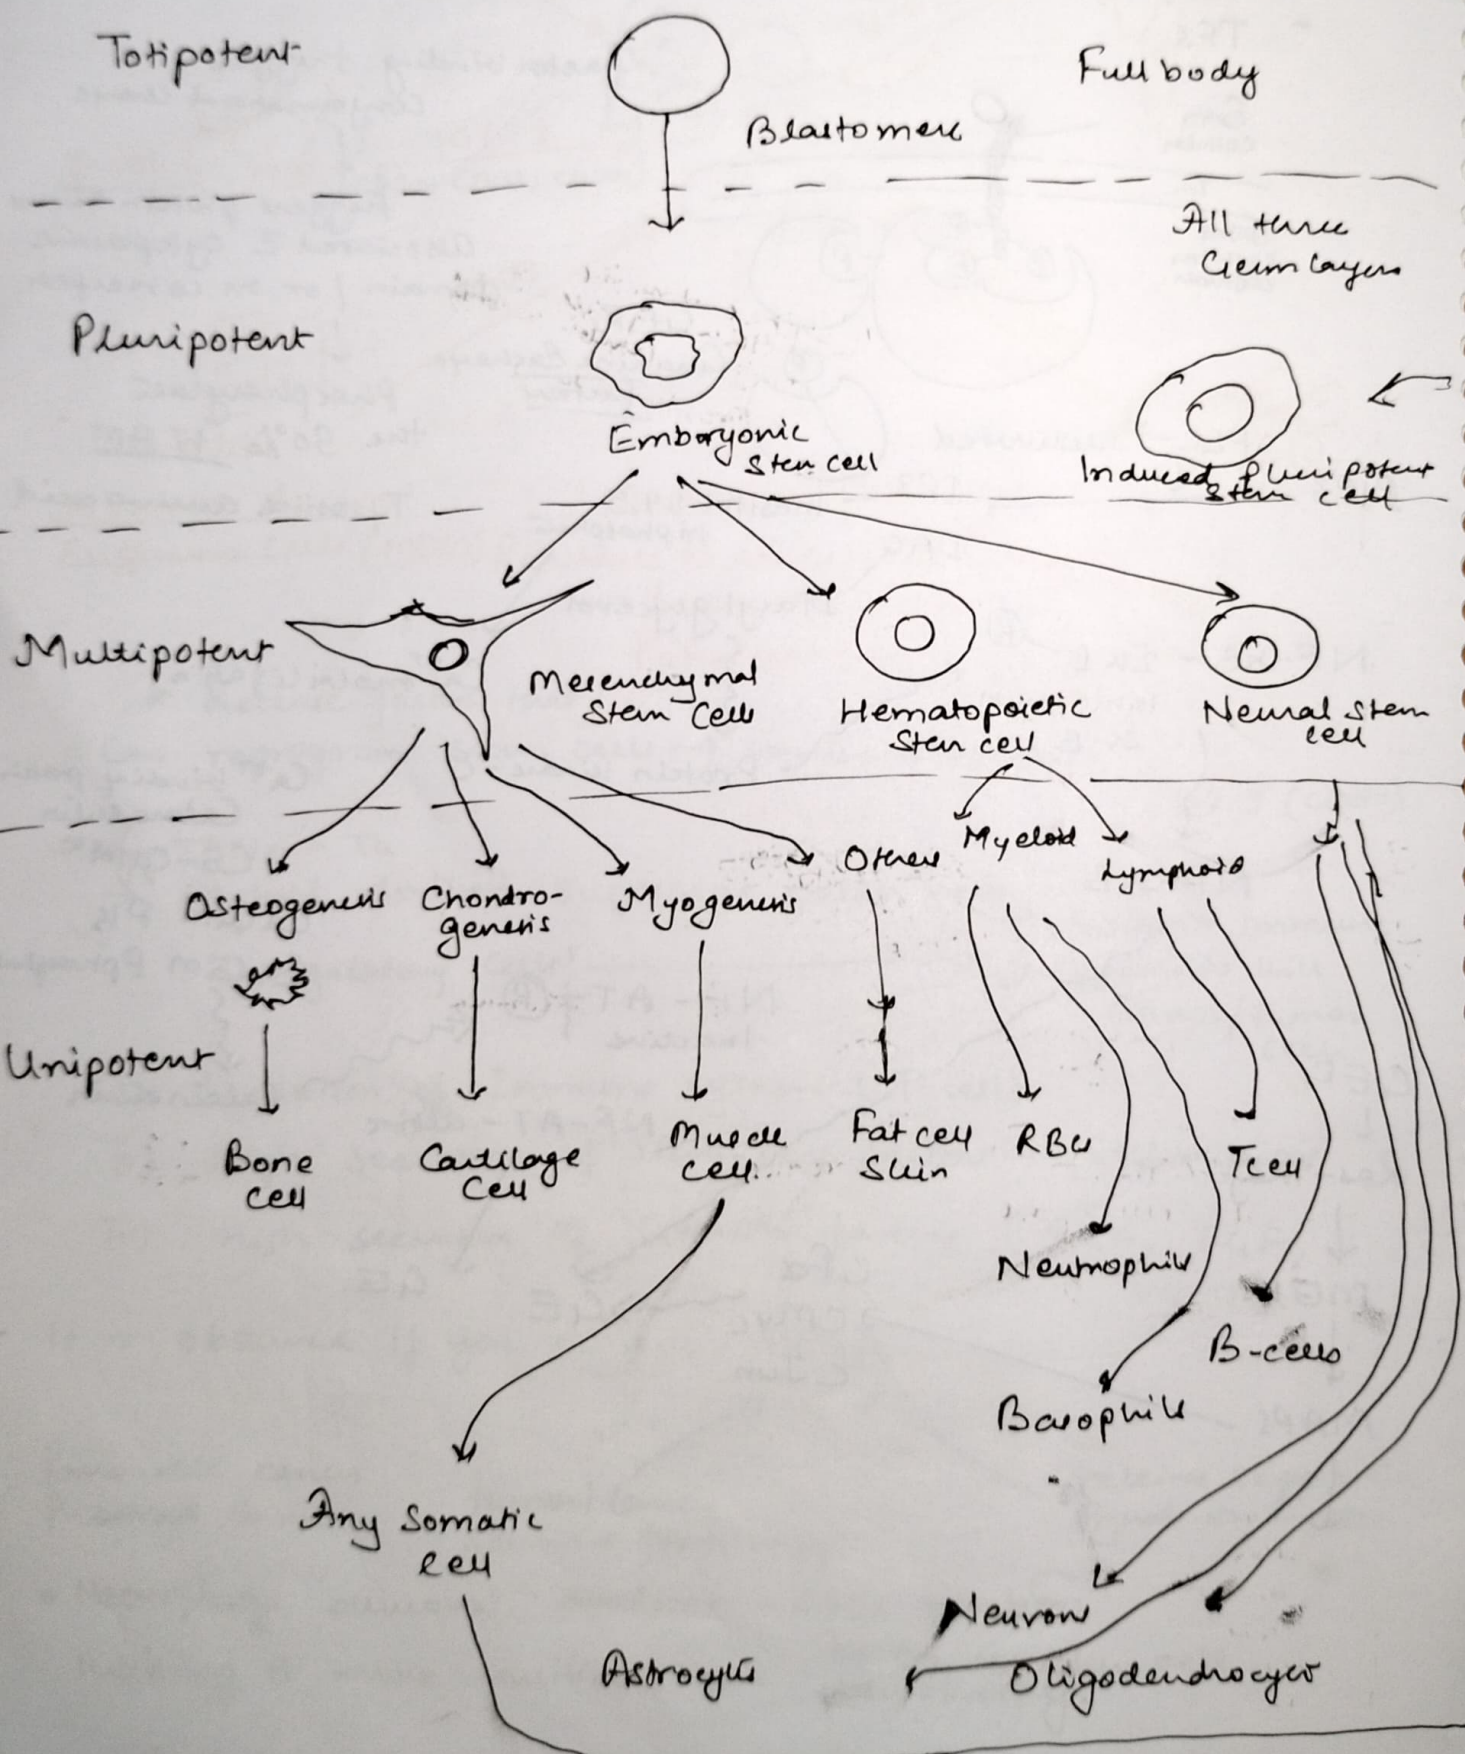 Totipotent
Full body
Blastomere
All three
Germ layers
Pluripotent
Embryonic
Stem cell
Induced Pluripotent
Stem cell
Multipotent
Mesenchymal
Stem Cells
Hematopoietic
Stem cell
Neural Stem
cell
Osteogenesis
Chondro-
genesis
Myogenesis
Others
Myeloid
Lymphoid
Unipotent
Bone
cell
Cartilage
Cell
Muscle
cell
Fat cell
Skin
RBCs
T cell
Neutrophils
B-cells
Basophils
Any Somatic
cell
Neurons
Astrocytes
Oligodendrocytes